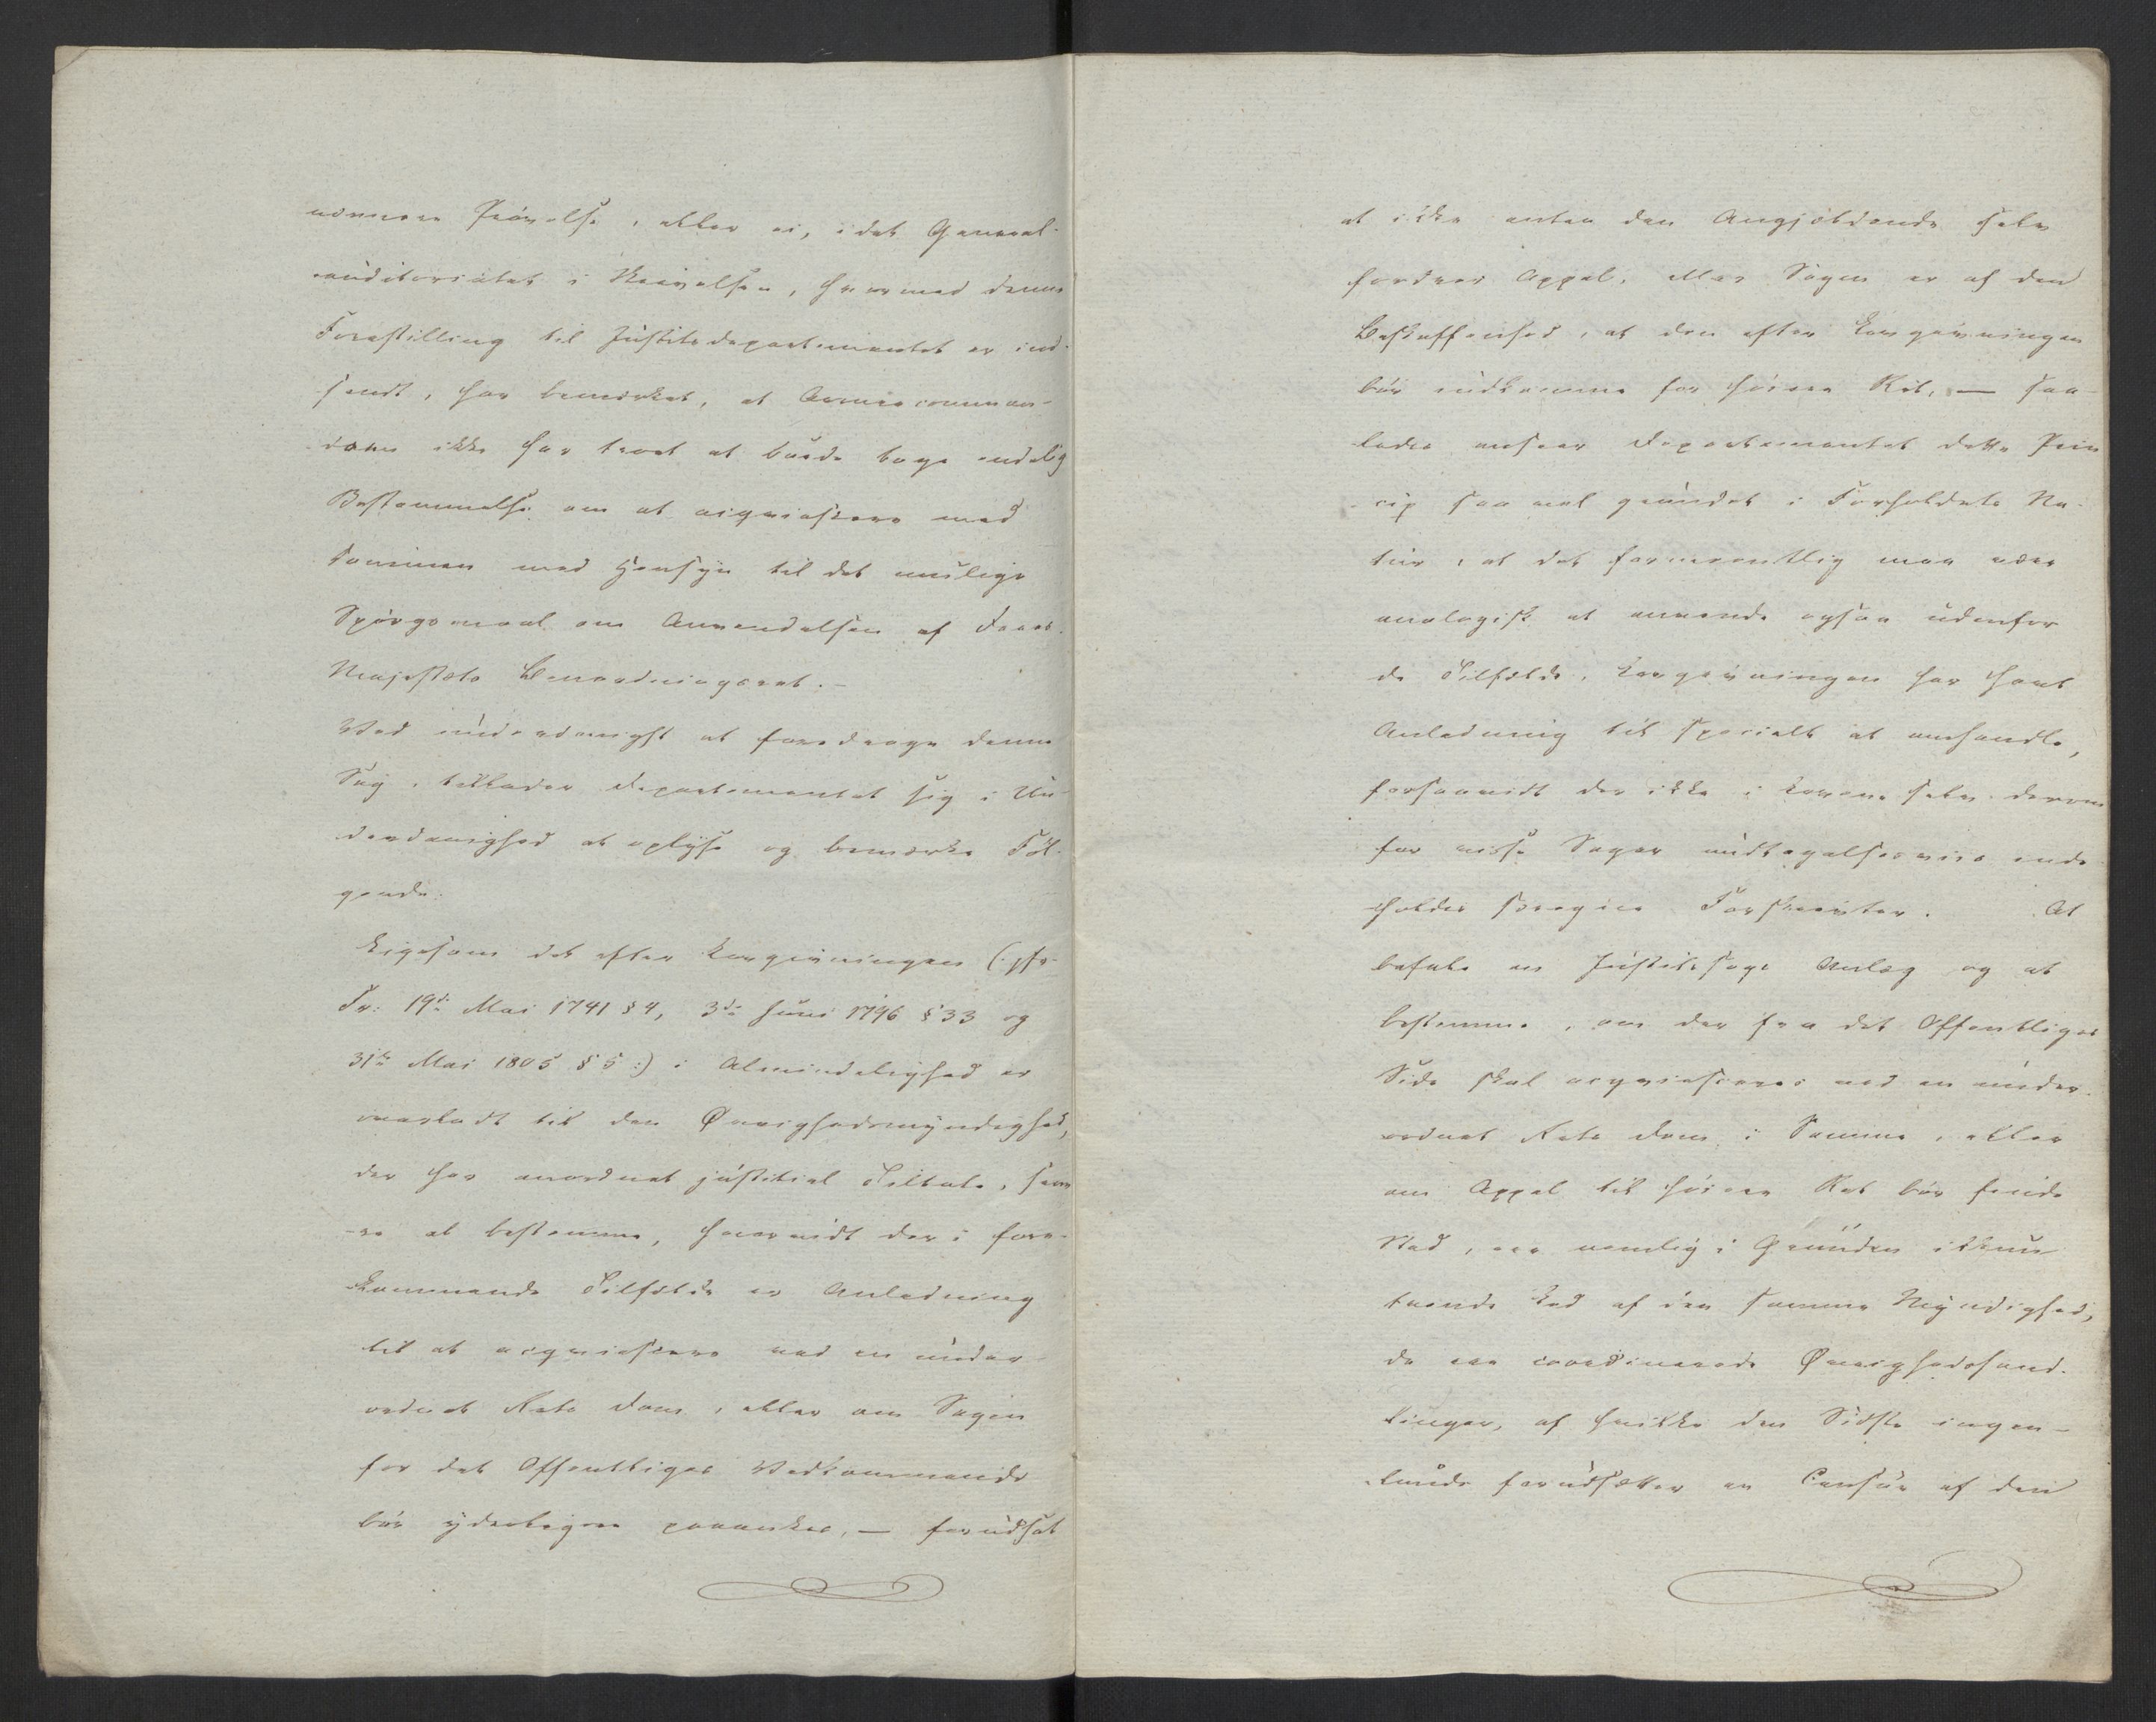 nærmere Prøvelse, eller ei, idet General-
auditoriatet i Skrivelsen, hvormed denne
Forestilling til Justitsdepartementet er ind-
sendt, har bemærket, at Armeecomman-
doen ikke har troet at burde tage endelig
Bestemmelse om at acqviescere med
Dommen med Hensyn til det mulige
Spörgsmaal om Anvendelsen af Deres
Majestæts Benaadningsret. –
Ved underdanigst at foredrage denne
Sag, tillader Departementet sig i Un-
derdanighed at oplyse og bemærke Föl-
gende:
Ligesom det efter Lovgivningen (:jfr.
Fr: 19de Mai 1741 § 4, 3die Juni 1796 § 33 og
31te Mai 1805 § 5:) i Almindelighed er
overladt til den Øvrighedsmyndighed,
der har anordnet justitiel Tiltale,
at bestemme, hvorvidt der i fore-
kommende Tilfælde er Anledning
til at acqviescere ved en under-
ordnet Rets Dom, eller om Sagen
for det Offentliges Vedkommende
bör yderligere paaankes, — forudsat
at ikke enten den Angjældende selv
fordrer Appel, eller Sagen er af den
Beskaffenhed, at den efter Lovgivningen
bör udkomme for höiere Ret, — saa-
ledes anseer Departementet dette Prin
cip saa vel grundet i Forholdets Na-
tur, at det formeentlig maa være
analogisk at anvende ogsaa udenfor
de Tilfælde, Lovgivningen har havt
Anledning til specielt at omhandle,
forsaavidt der ikke i Lovene selv derom
for visse Sager undtagelsesviis inde
holdes særegne Forskrivter. At
befale en Justitssags Anlæg og at
bestemme, om der fra det Offentliges
Side skal acqviesceres ved en under-
ordnet Rets Dom i Samme, eller
om Appel til höiere Ret bör finde
Sted, ere nemlig i Grunden ikkun
tvende Led af den samme Myndighed,
de ere coordinerede Øvrighedshand-
linger, af hvilke den Sidste ingen-
lunde forudsætter en Censur af den